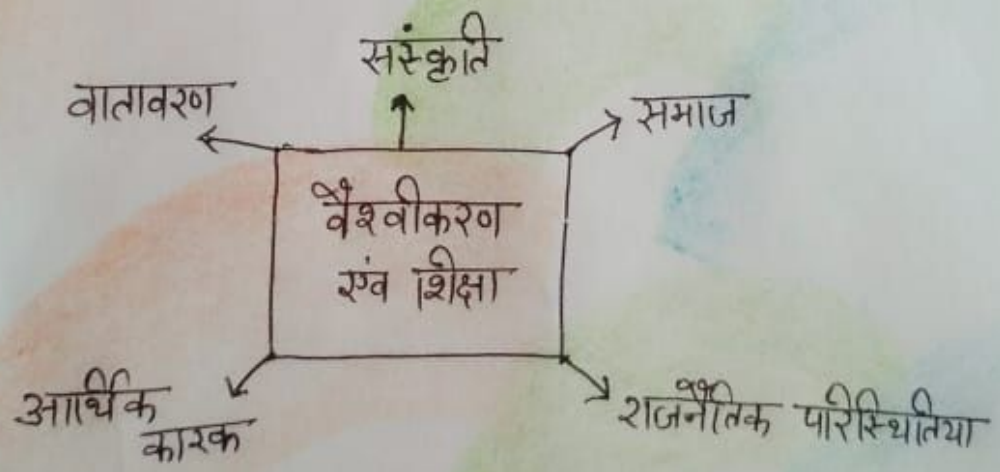 संस्कृति
वातावरण
समाज
वैश्वीकरण
एंव शिक्षा
आर्थिक
कारक
राजनैतिक परिस्थितिया